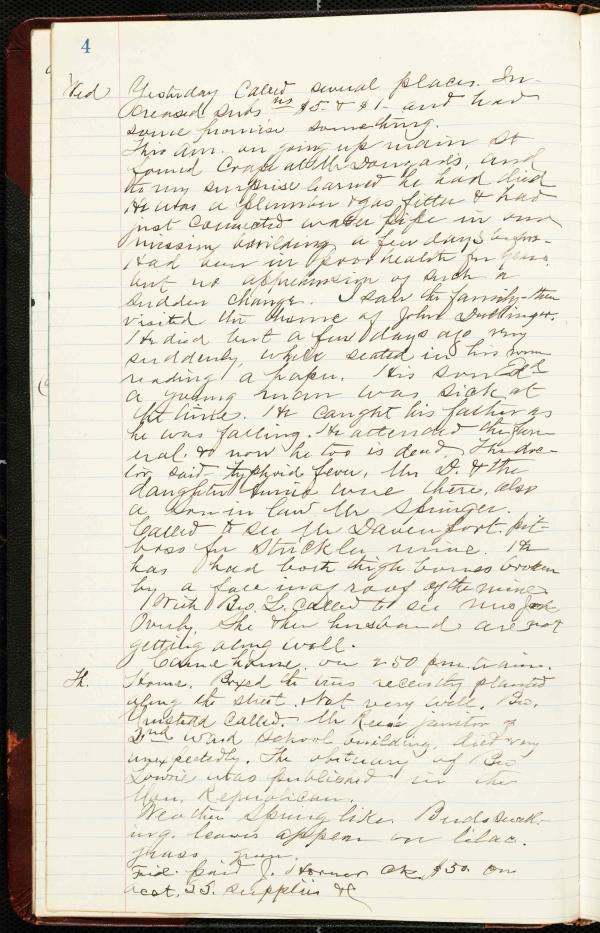 4
Wed Yesterday Called several places. In-
creased subs $5. & $1. and had
some promise something.
This am. on going up main St
found Crape at Mr Dougads, and
to my surprise learned he had died
He was a plumber & gas fitter & had
just connected water pipe in our
mission building a few days before.
Had been in poor health for years
but no apprehension of such a
sudden change. I saw the family - then
visited the home of John
He died but a few days ago very
suddenly, while seated in his room
reading a paper. His son Edd
a young man was sick at
the time. He caught his father as
he was falling. He attended the fun-
eral. & now he too is dead. The doc-
tor, said typhoid fever, Mrs D. & the
daughter were there, also
a son in law Mr Springer.
Called to see Mr Davenport. pit-
boss for Strickler mine. He
has had both thigh bones broken
by a fall in of roof of the mine
With Bro. L. called to see Mrs
Overly. She & her husband are not
getting along well.
Came home, on 2 50 pm. train.
Th. Home. Boxed the trees recently planted
along the street. Not very well. Bro.
called. Mr Reese janitor of
2nd Ward School building, died very
unexpectedly. The obituary of Bro
Lowrie was published in the
Mon. Republican.
Weather Springlike. Buds swell-
ing. leaves appear on lilac.
grass green.
Frid. paid J. Horner ck. $50. on
acct. S.S. supplies &c